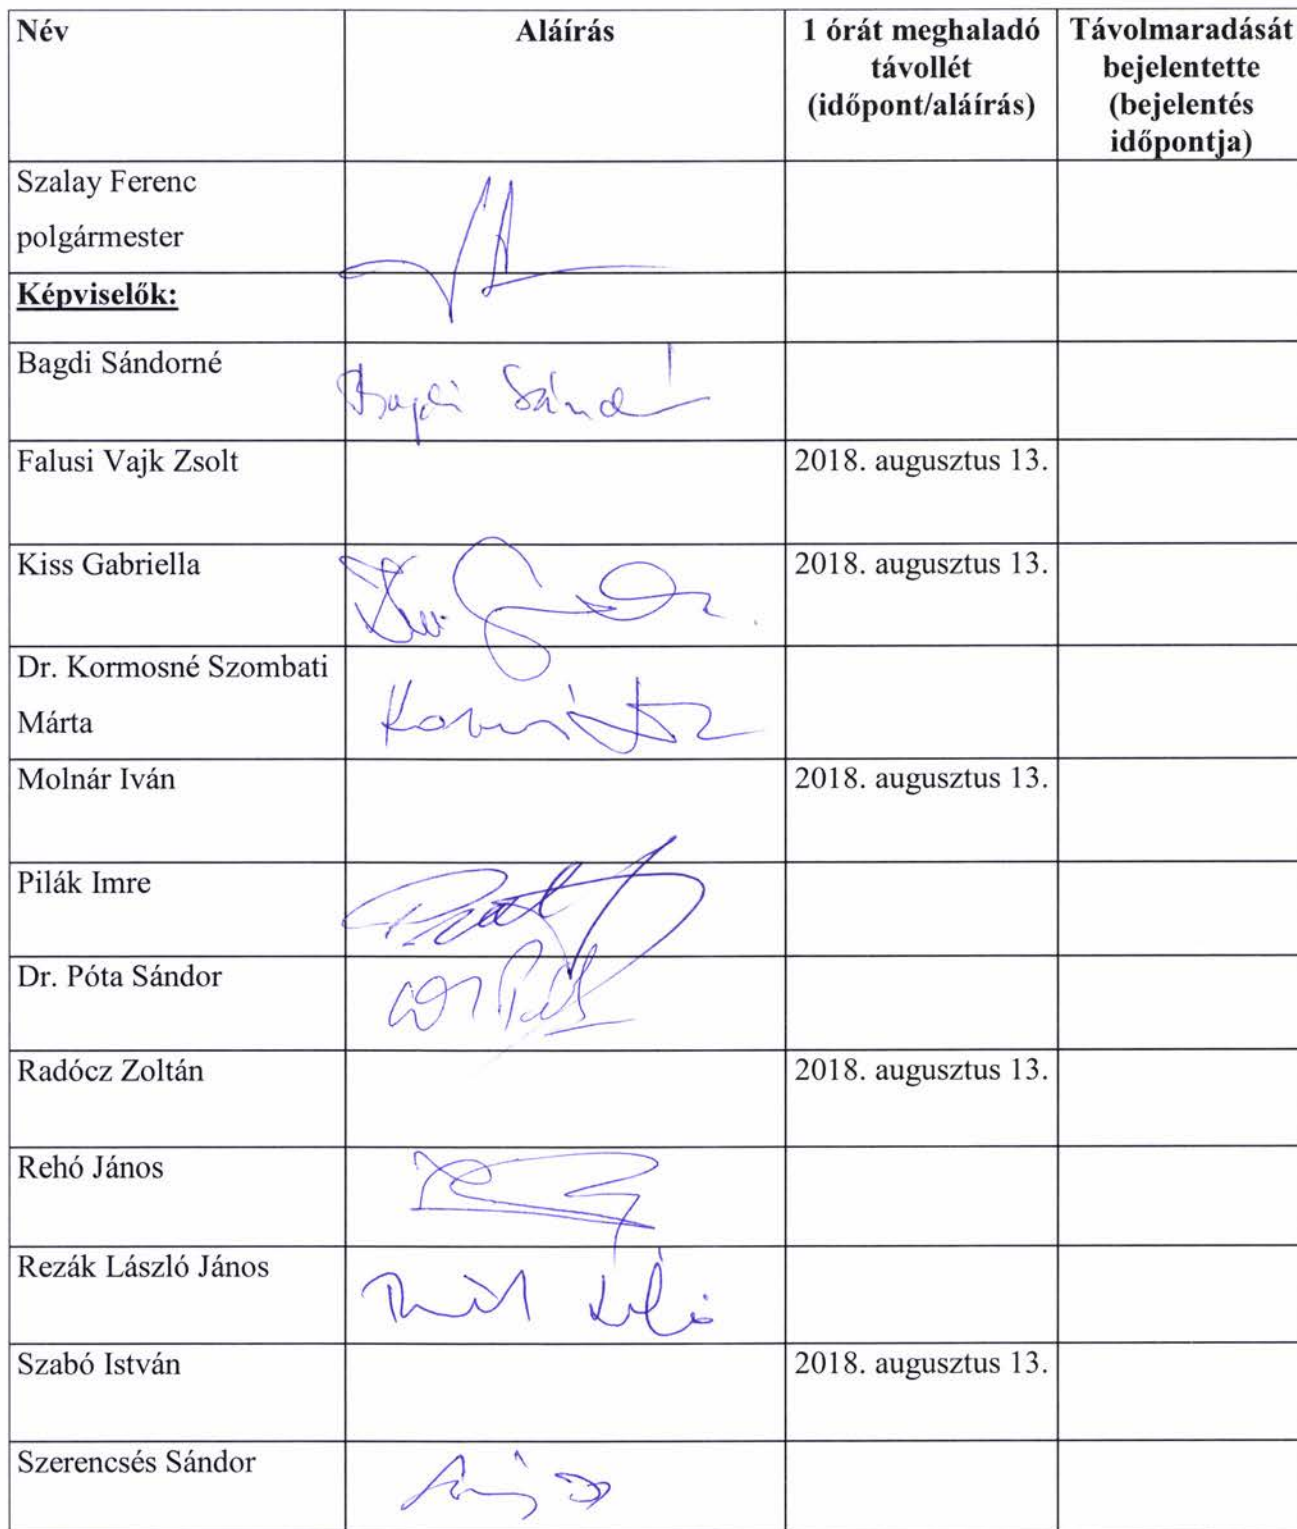 Név
Aláírás
1 órát meghaladó
távollét
(időpont/aláírás)
Távolmaradását
bejelentette
(bejelentés
időpontja)
Szalay Ferenc
polgármester
Képviselők:
Bagdi Sándorné
Bagdi Sándorné
Falusi Vajk Zsolt
2018. augusztus 13.
Kiss Gabriella
2018. augusztus 13.
Dr. Kormosné Szombati
Márta
Molnár Iván
2018. augusztus 13.
Pilák Imre
Dr. Póta Sándor
Radócz Zoltán
2018. augusztus 13.
Rehó János
Rezák László János
Szabó István
2018. augusztus 13.
Szerencsés Sándor